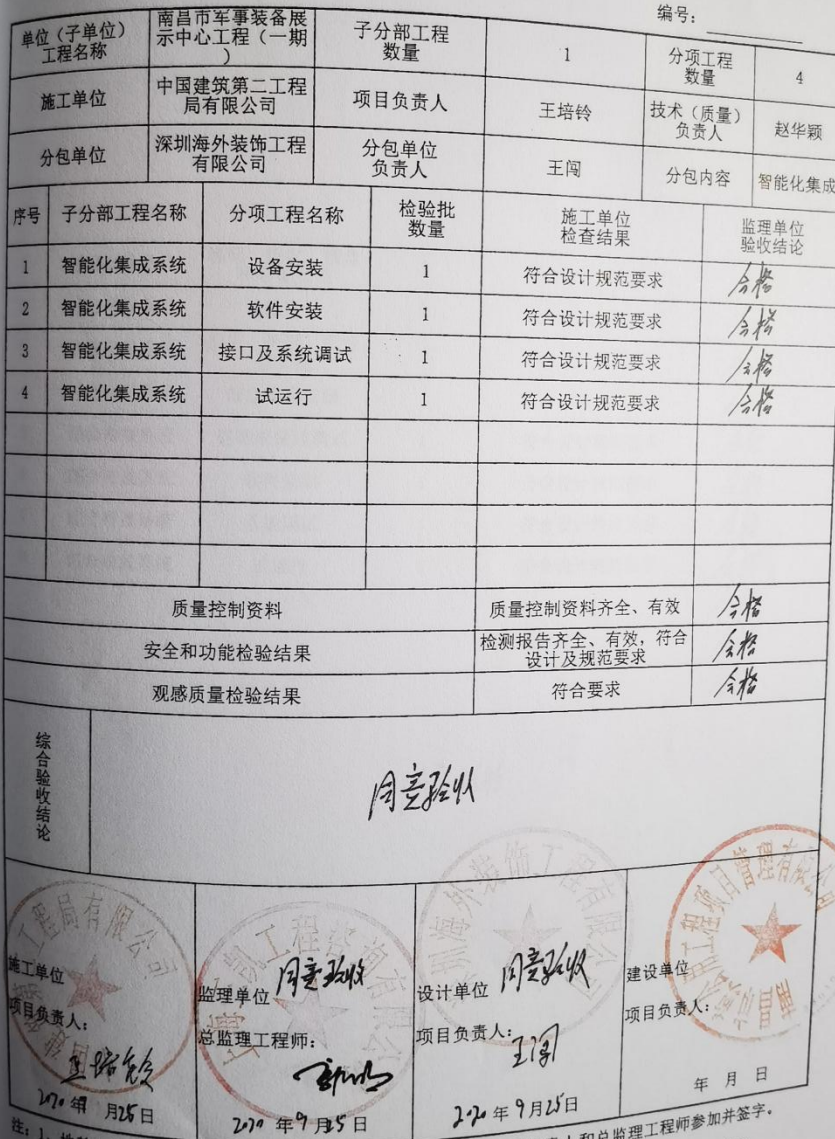 编号：
单位（子单位）工程名称 南昌市军事装备展示中心工程（一期） 子分部工程数量 1 分项工程数量 4
施工单位 中国建筑第二工程局有限公司 项目负责人 王培铃 技术（质量）负责人 赵华颖
分包单位 深圳海外装饰工程有限公司 分包单位负责人 王闯 分包内容 智能化集成
序号 子分部工程名称 分项工程名称 检验批数量 施工单位检查结果 监理单位验收结论
1 智能化集成系统 设备安装 1 符合设计规范要求 合格
2 智能化集成系统 软件安装 1 符合设计规范要求 合格
3 智能化集成系统 接口及系统调试 1 符合设计规范要求 合格
4 智能化集成系统 试运行 1 符合设计规范要求 合格
质量控制资料 质量控制资料齐全、有效 合格
安全和功能检验结果 检测报告齐全、有效，符合设计及规范要求 合格
观感质量检验结果 符合要求 合格
综合验收结论 同意验收
工程局有限公司
深圳海外装饰工程有限公司
施工单位 监理单位 同意验收 设计单位 同意验收 建设单位
项目负责人： 总监理工程师： 项目负责人： 项目负责人：
王培铃 王闯
2020年9月25日 2020年9月25日 2020年9月25日 年 月 日
注：1、
人和总监理工程师参加并签字。